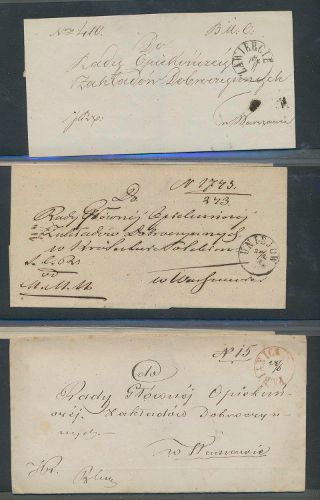 No 410.
Do
Rady Opiekuńczej
Zakładów Dobroczynnych
w Warszawie
N 1743.
243
Do
Rady Głównej Opiekuńczej
Zakładów Dobroczynnych
w Królestwie Polskim
w Warszawie
UNIEJÓW
N 15
do
Rady Głównéj Opiekuń-
czéj Zakładów Dobroczyn-
nych
w Warszawie